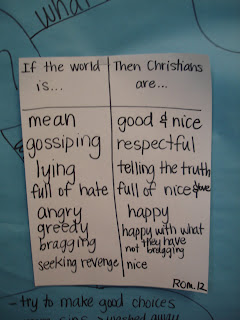 what
If the world is...
Then Christians are...
mean
good & nice
gossiping
respectful
lying
telling the truth
full of hate
full of nice & love
angry
happy
greedy
happy with what they have
bragging
not bragging
seeking revenge
nice
Rom. 12
- try to make good choices
washed away